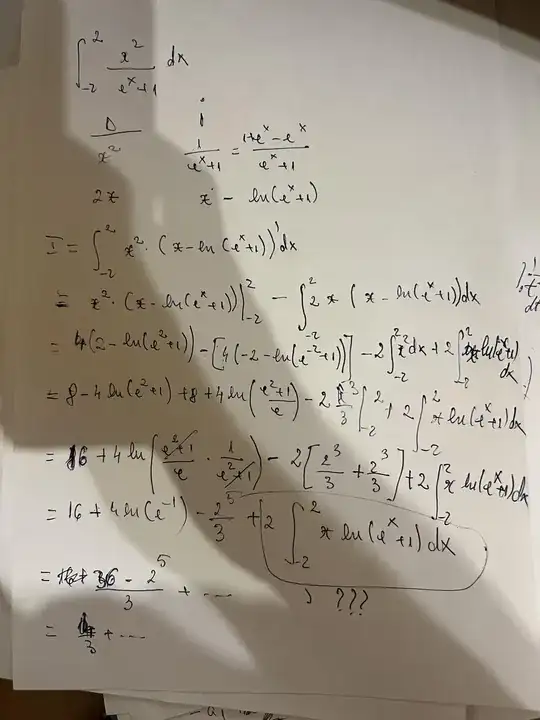 ∫_{-2}^{2} x²/(e^x+1) dx
D I
x² 1/(e^x+1) = (1+e^x-e^x)/(e^x+1)
2x x - ln(e^x+1)
I = ∫_{-2}^{2} x² · (x-ln(e^x+1))' dx
= x² · (x-ln(e^x+1))|_{-2}^{2} - ∫_{-2}^{2} 2x (x-ln(e^x+1))dx
= 4(2-ln(e²+1)) - [4(-2-ln(e^{-2}+1))] - 2∫_{-2}^{2} x²dx + 2∫_{-2}^{2} x ln(e^x+1) dx
= 8-4ln(e²+1) +8+4ln((e²+1)/e) - 2 x³/3 |_{-2}^{2} + 2∫_{-2}^{2} x ln(e^x+1)dx
= 16 + 4ln((e²+1)/e · 1/(e²+1)) - 2[2³/3 + 2³/3] + 2∫_{-2}^{2} x ln(e^x+1)dx
= 16 + 4ln(e^{-1}) - 2⁵/3 + 2 ∫_{-2}^{2} x ln(e^x+1) dx
= (36 - 2⁵)/3 + ...
???
= 4/3 + ...